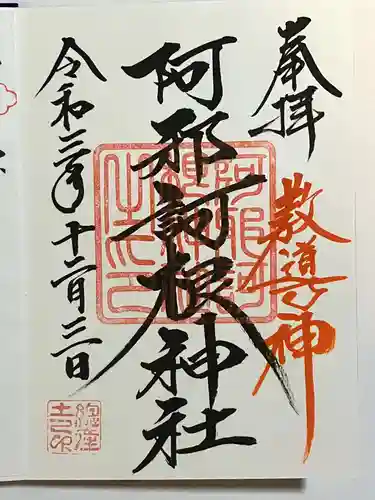 奉拝
教導の神
阿邪訶根神社
令和三年十二月三日